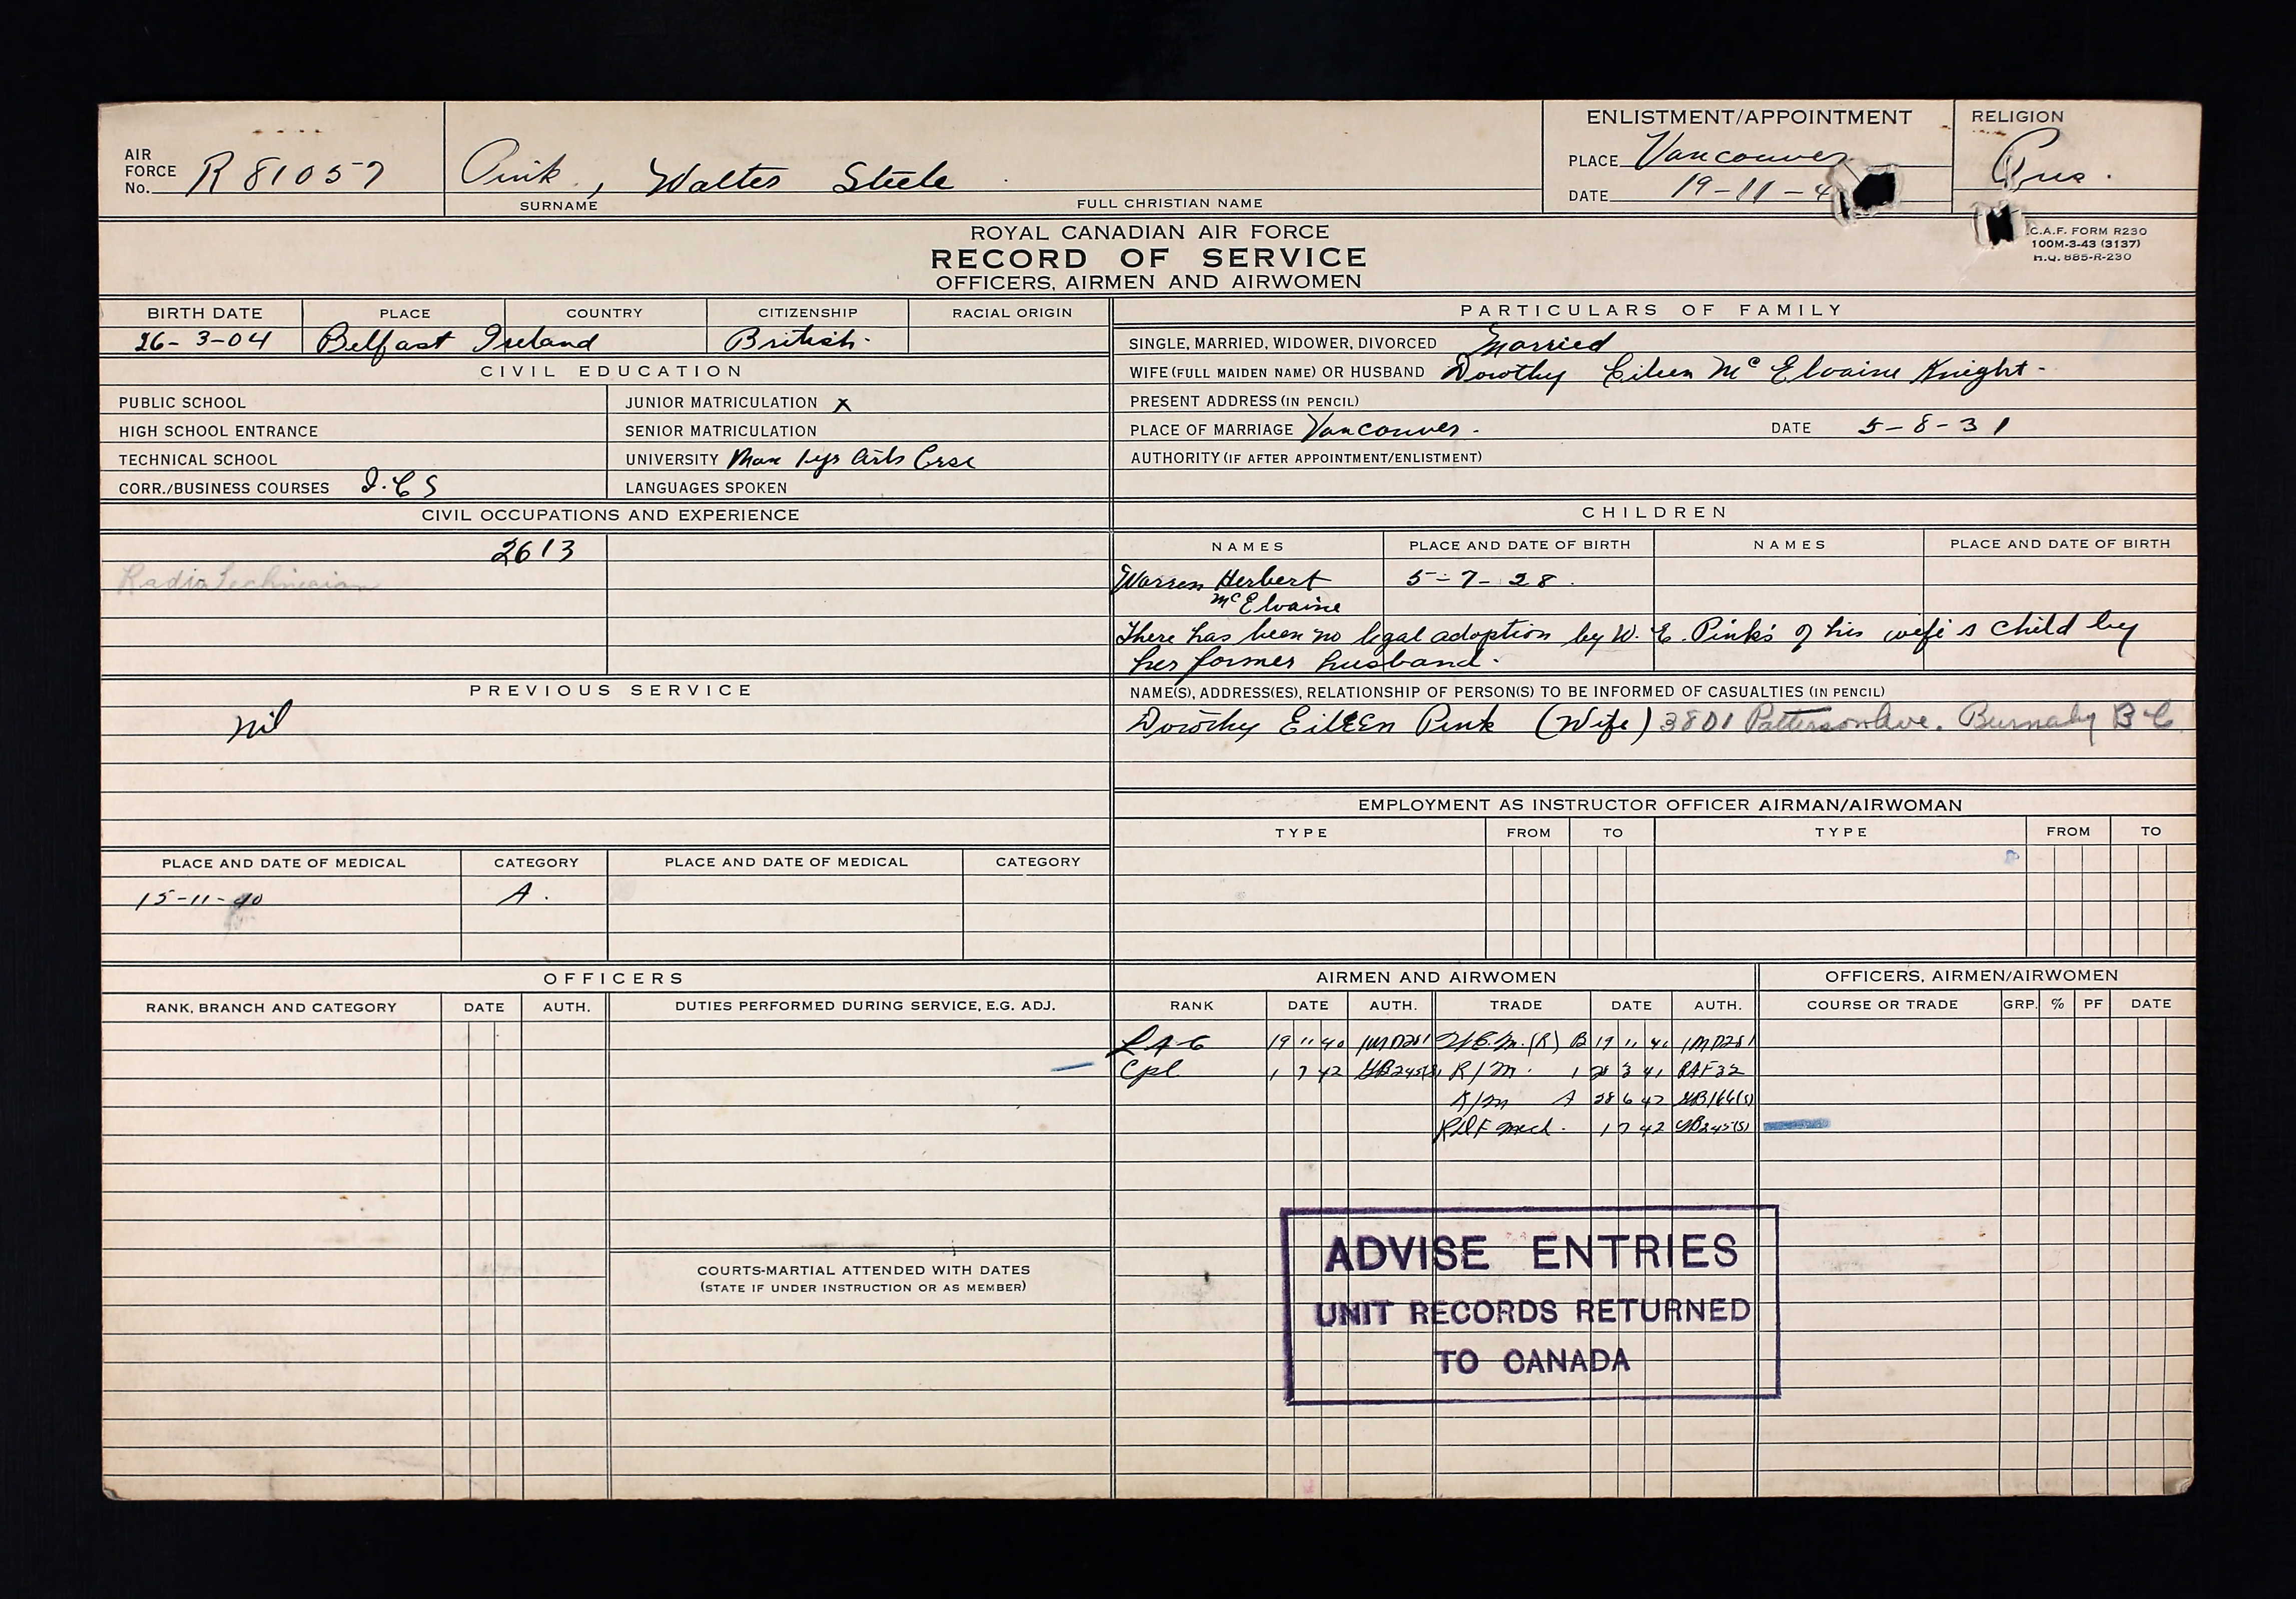 AIR FORCE No. R 81057
Pink, Walter Steele
SURNAME FULL CHRISTIAN NAME
ENLISTMENT/APPOINTMENT
PLACE Vancouver
DATE 19-11-4
RELIGION
Pres.
ROYAL CANADIAN AIR FORCE
RECORD OF SERVICE
OFFICERS, AIRMEN AND AIRWOMEN
C.A.F. FORM R230
100M-3-43 (3137)
H.Q. 885-R-230
BIRTH DATE PLACE COUNTRY CITIZENSHIP RACIAL ORIGIN
26-3-04 Belfast Ireland British.
CIVIL EDUCATION
PUBLIC SCHOOL JUNIOR MATRICULATION X
HIGH SCHOOL ENTRANCE SENIOR MATRICULATION
TECHNICAL SCHOOL UNIVERSITY Man 1 yr Arts Crse
CORR./BUSINESS COURSES I.C S LANGUAGES SPOKEN
CIVIL OCCUPATIONS AND EXPERIENCE
2613
Radio Technician
PREVIOUS SERVICE
nil
PLACE AND DATE OF MEDICAL CATEGORY PLACE AND DATE OF MEDICAL CATEGORY
15-11-40 A.
PARTICULARS OF FAMILY
SINGLE, MARRIED, WIDOWER, DIVORCED Married
WIFE (FULL MAIDEN NAME) OR HUSBAND Dorothy Eileen McElvaine Knight-
PRESENT ADDRESS (IN PENCIL)
PLACE OF MARRIAGE Vancouver. DATE 5-8-31
AUTHORITY (IF AFTER APPOINTMENT/ENLISTMENT)
CHILDREN
NAMES PLACE AND DATE OF BIRTH NAMES PLACE AND DATE OF BIRTH
Warren Herbert 5-7-28.
McElvaine
There has been no legal adoption by W. E. Pinks of his wife's child by
her former husband.
NAME(S), ADDRESS(ES), RELATIONSHIP OF PERSON(S) TO BE INFORMED OF CASUALTIES (IN PENCIL)
Dorothy Eileen Pink (Wife) 3801 Patterson Ave. Burnaby B C
EMPLOYMENT AS INSTRUCTOR OFFICER AIRMAN/AIRWOMAN
TYPE FROM TO TYPE FROM TO
OFFICERS
RANK, BRANCH AND CATEGORY DATE AUTH. DUTIES PERFORMED DURING SERVICE, E.G. ADJ.
COURTS-MARTIAL ATTENDED WITH DATES
(STATE IF UNDER INSTRUCTION OR AS MEMBER)
AIRMEN AND AIRWOMEN OFFICERS, AIRMEN/AIRWOMEN
RANK DATE AUTH. TRADE DATE AUTH. COURSE OR TRADE GRP. % PF DATE
LAC 19 11 40 1MD281 W.E.M.(R) B 19 11 40 1MD281
Cpl 1 7 42 R/M. 1 28 3 41 RAF32
R/M A 28 6 42
RDF Mech. 1 7 42
ADVISE ENTRIES
UNIT RECORDS RETURNED
TO CANADA